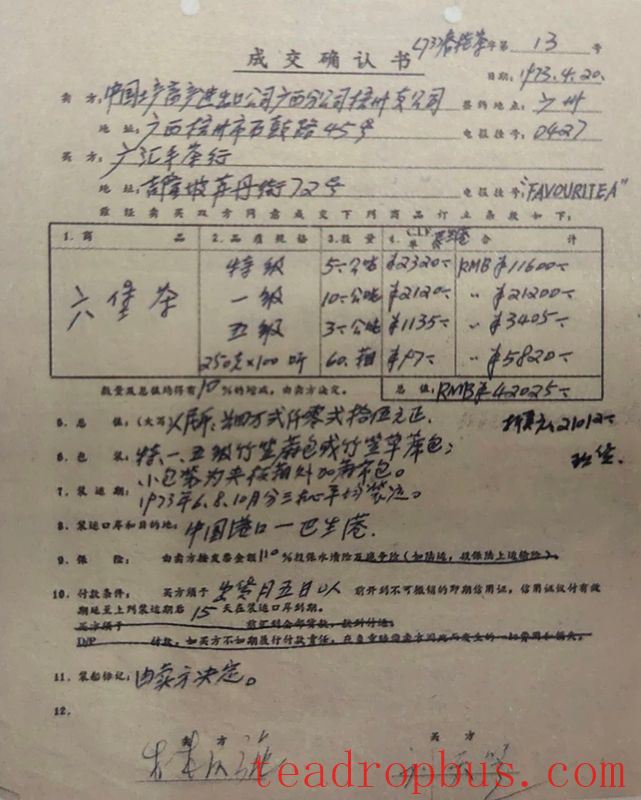 (73)春梧茶字第 13 号
成交确认书
日期: 1973.4.20.
卖方: 中国土产畜产进出口公司广西分公司梧州支公司 签约地点: 广州
地址: 广西梧州市石鼓路45号 电报挂号: 0427
买方: 广汇丰茶行
地址: 吉隆坡 72号 电报挂号: "FAVOURITEA"
兹经卖买双方同意成交下列商品订立条款如下:
1. 商品 2. 品质规格 3. 数量 4. 单价 C.I.F. 巴生港 合计
六堡茶 特级 5-公吨 ¥2320- RMB¥11600-
一级 10-公吨 ¥2120- 〃 ¥21200-
五级 3-公吨 ¥1135- 〃 ¥3405-
250克×100听 60.箱 ¥97- 〃 ¥5820-
数量及总值均得有10%的增减, 由卖方决定。 总值: RMB¥42025-
5. 总值: (大写) 人民币: 肆万式仟零式拾伍元正.
6. 包装: 特、一、五级竹笠麻包或竹笠草席包;
小包装为夹板箱外加麻布包。
7. 装运期: 1973年6.8.10月分三批平均装运。
8. 装运口岸和目的地: 中国港口一巴生港.
9. 保险: 由卖方按发票金额110%投保水渍险及战争险(如陆运,投保陆上运输险)
10. 付款条件: 买方须于 出货月五日以 前开到不可撤销的即期信用证, 信用证议付有效
期延至上列装运期后 15 天在装运口岸到期。
买方须于 前汇到全部货款,款到付运
D/P 付款, 如买方不如期履行付款责任,
11. 装船标记: 由卖方决定。
12.
卖方 买方
teadropbus.com